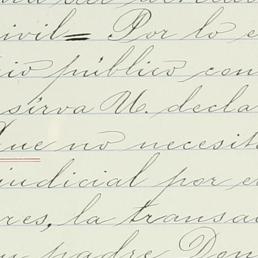 ivil= Por lo e
io público con
sirva U. decla
Que no necesit
judicial por e
res, la transac
u padre Don